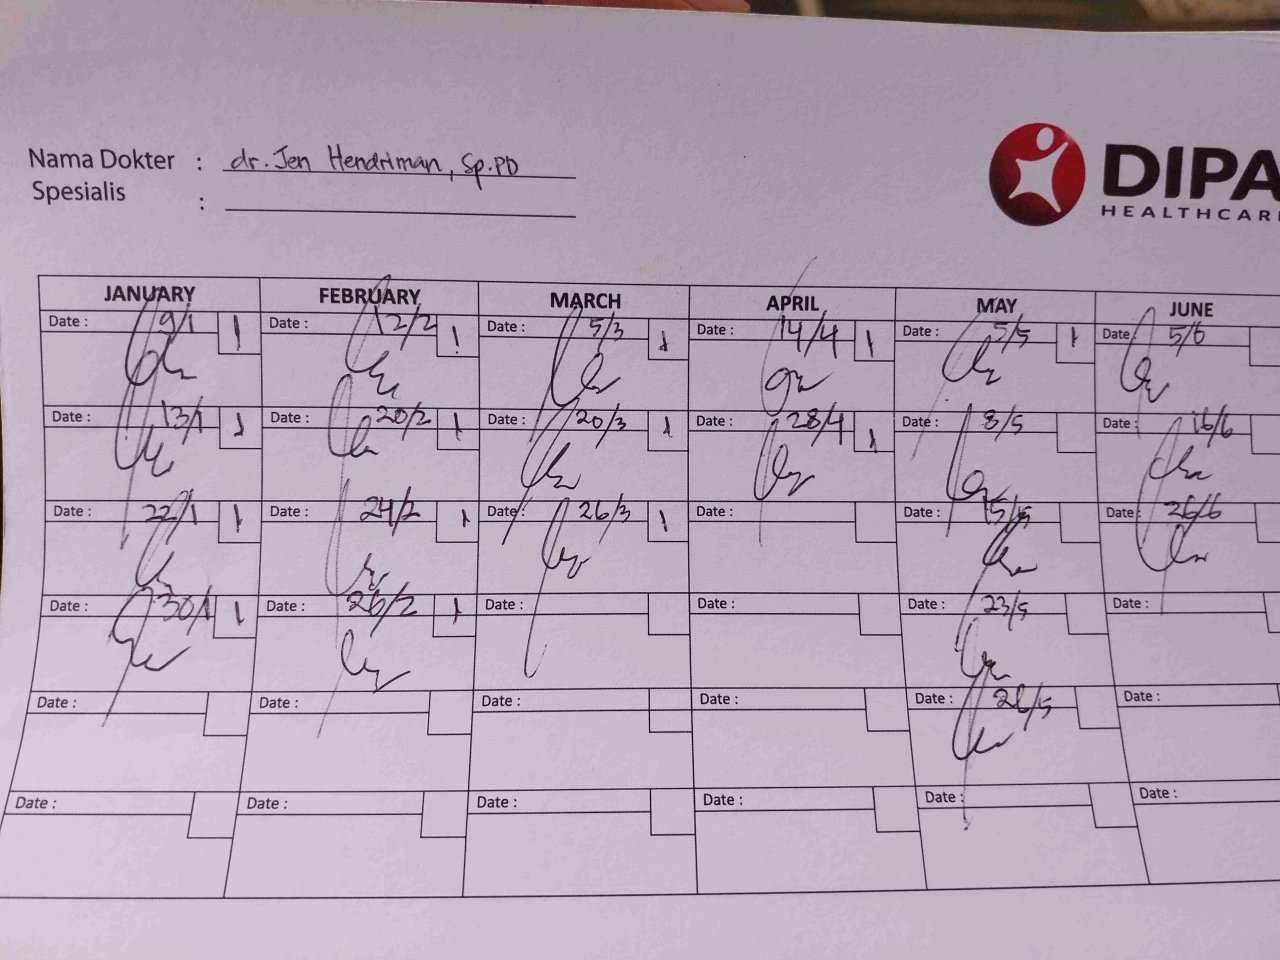 Nama Dokter : dr. Jen Hendriman, Sp.PD
Spesialis :
DIPA
HEALTHCARE
JANUARY FEBRUARY MARCH APRIL MAY JUNE
Date : 9/1 1 Date : 12/2 1 Date : 5/3 1 Date : 14/4 1 Date : 5/5 1 Date : 5/6
Date : 13/1 1 Date : 20/2 1 Date : 20/3 1 Date : 28/4 1 Date : 8/5 Date : 16/6
Date : 22/1 1 Date : 24/2 1 Date : 26/3 1 Date : Date : 15/5 Date : 26/6
Date : 30/1 1 Date : 26/2 1 Date : Date : Date : 23/5 Date :
Date : Date : Date : Date : Date : 26/5 Date :
Date : Date : Date : Date : Date : Date :